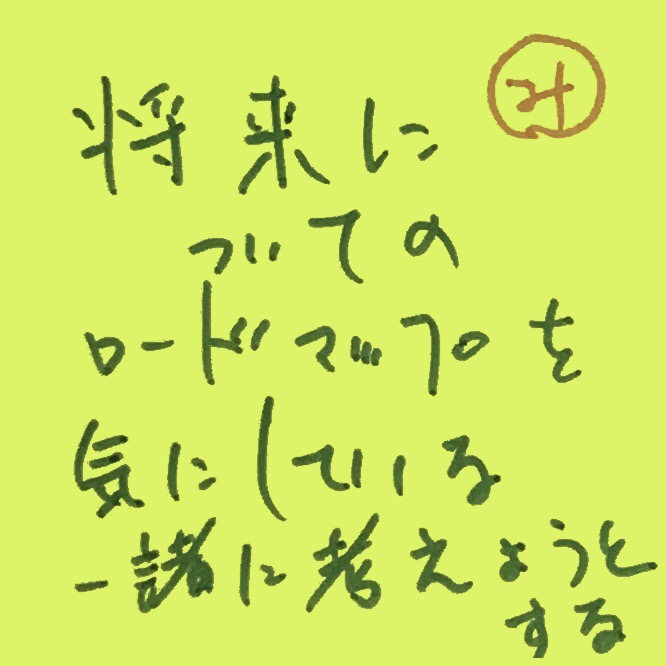 将来に
ついての
ロードマップを
気にしている
一諸に考えようと
する